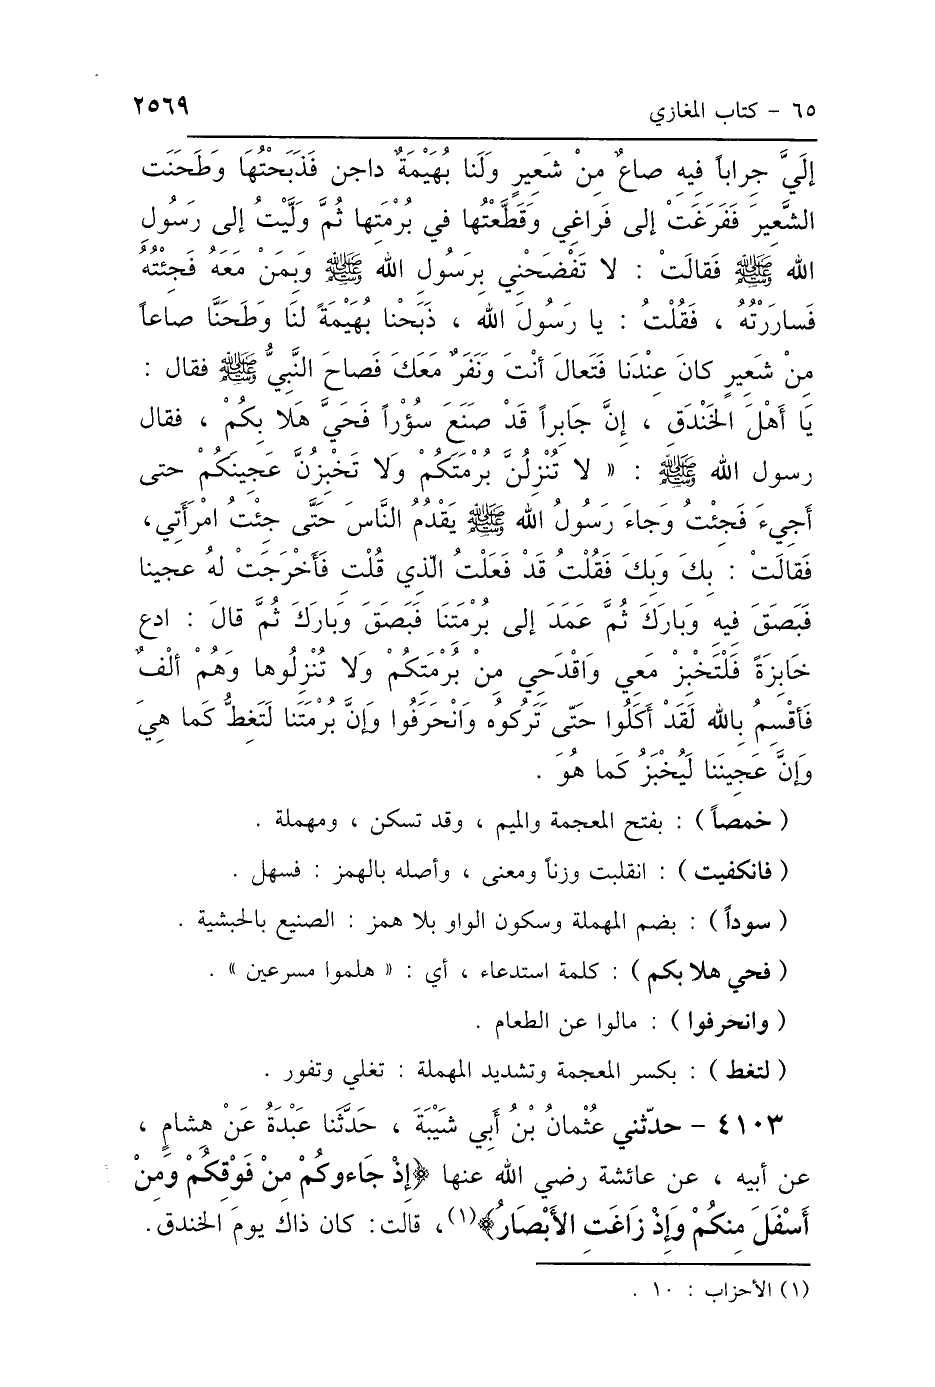 ٦٥ - كتاب المغازي ٢٥٦٩
إلَيَّ جراباً فيهِ صاعٌ مِنْ شَعيرٍ وَلَنا بُهَيْمَةٌ داجن فَذَبَحْتُهَا وَطَحَنَت
الشَّعيرَ فَفَرَغَتْ إلى فَرَاغي وَقَطَّعْتُها في بُرْمَتِها ثُمَّ وَلَّيْتُ إلى رَسُولِ
الله ﷺ فَقالَتْ : لا تَفْضَحْني بِرَسُولِ الله ﷺ وَبِمَنْ مَعَهُ فَجِئْتُهُ
فَسارَرْتُهُ ، فَقُلْتُ : يا رَسُولَ الله ، ذَبَحْنا بُهَيْمَةً لنَا وَطَحنَّا صاعاً
مِنْ شَعيرٍ كانَ عِنْدَنا فَتَعالَ أنْتَ وَنَفَرٌ مَعَكَ فَصاحَ النَّبيُّ ﷺ فقال :
يَا أَهْلَ الخَنْدَقِ ، إنَّ جَابِراً قَدْ صَنَعَ سُؤْراً فَحَيَّ هَلا بِكُمْ ، فقال
رسول الله ﷺ : « لا تُنْزِلُنَّ بُرْمَتَكُمْ وَلا تَخْبِزُنَّ عَجينَكُمْ حتى
أجيءَ فَجِئْتُ وَجاءَ رَسُولُ الله ﷺ يَقْدُمُ النَّاسَ حَتَّى جئْتُ امْرأَتي،
فَقالَتْ : بِكَ وَبِكَ فَقُلْتُ قَدْ فَعَلْتُ الّذي قُلْتِ فَأَخْرَجَتْ لهُ عجينا
فَبَصَقَ فيهِ وَبارَكَ ثُمَّ عَمَدَ إلى بُرْمَتَنَا فَبَصَقَ وَبارَكَ ثُمَّ قالَ : ادع
خَابِزَةً فَلْتَخْبِزْ مَعي وَاقْدَحي مِنْ بُرْمَتِكُمْ وَلا تُنْزِلُوها وَهُمْ ألْفٌ
فَأقْسِمُ بالله لَقَدْ أكَلُوا حتّى تَرَكُوه وَانْحَرَفُوا وَإنَّ بُرْمَتَنا لَتَغطُّ كَما هِيَ
وَإنَّ عَجينَنا لَيُخْبَزُ كَما هُوَ .
( خمصاً ) : بفتح المعجمة والميم ، وقد تسكن ، ومهملة .
( فانكفيت ) : انقلبت وزناً ومعنى ، وأصله بالهمز : فسهل .
( سوداً ) : بضم المهملة وسكون الواو بلا همز : الصنيع بالحبشية .
( فحي هلا بكم ) : كلمة استدعاء ، أي : « هلموا مسرعين » .
( وانحرفوا ) : مالوا عن الطعام .
( لتغط ) : بكسر المعجمة وتشديد المهملة : تغلي وتفور .
٤١٠٣ - حدّثني عُثْمانُ بْنُ أَبي شَيْبَةَ ، حَدَّثَنا عَبْدَةُ عَنْ هِشامٍ ،
عن أبيه ، عن عائشة رضي الله عنها ﴿إذْ جَاءوكُمْ مِنْ فَوْقِكُمْ وَمِنْ
أَسْفَلَ مِنكُمْ وَإذْ زَاغَتِ الأَبْصَارُ﴾(١)، قالت: كان ذاك يومَ الخندق.
(١) الأحزاب : ١٠ .